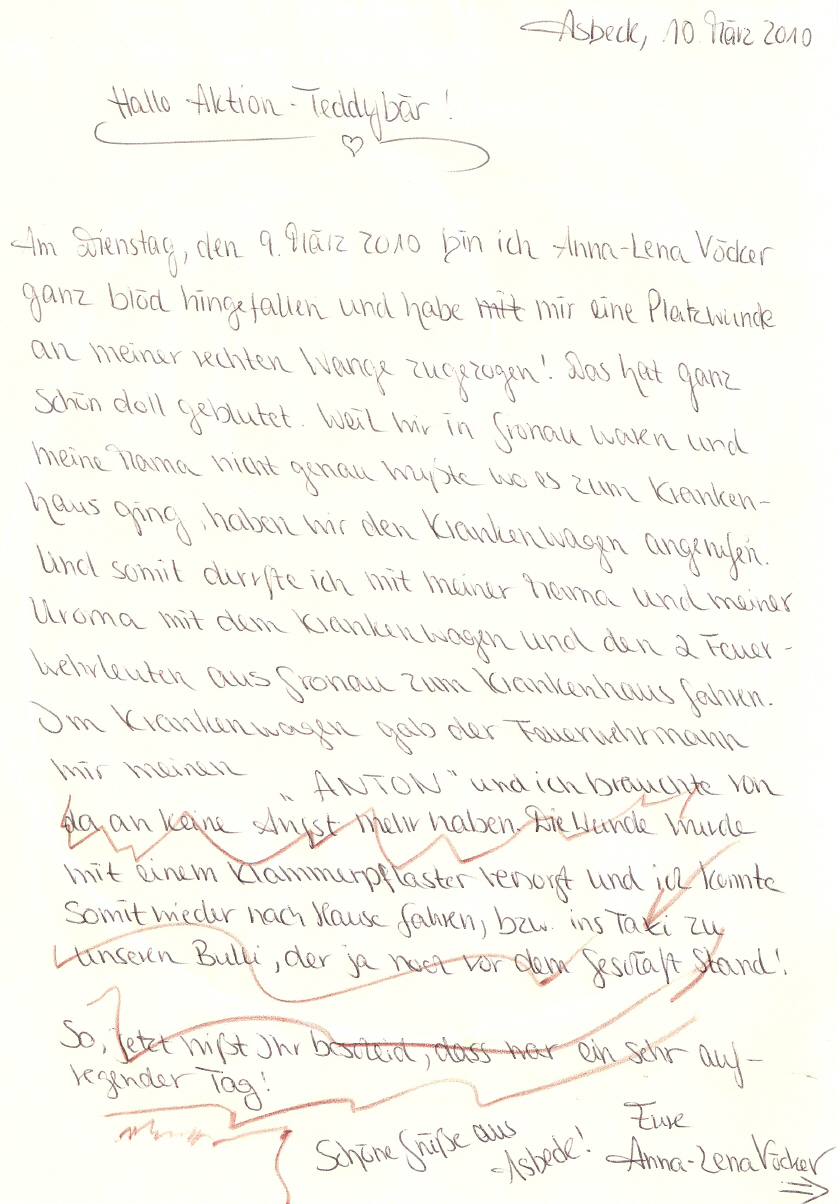 Asbeck, 10. März 2010
Hallo Aktion-Teddybär!
Am Dienstag, den 9. März 2010 bin ich Anna-Lena Vöcker
ganz blöd hingefallen und habe mit mir eine Platzwunde
an meiner rechten Wange zugezogen! Das hat ganz
schön doll geblutet. Weil wir in Gronau waren und
meine Mama nicht genau wußte wo es zum Kranken-
haus ging, haben wir den Krankenwagen angerufen.
Und somit durfte ich mit meiner Mama und meiner
Uroma mit dem Krankenwagen und den 2 Feuer-
wehrleuten aus Gronau zum Krankenhaus fahren.
Im Krankenwagen gab der Feuerwehrmann
mir meinen "ANTON" und ich brauchte von
da an keine Angst mehr haben. Die Wunde wurde
mit einem Klammerpflaster versorgt und ich konnte
somit wieder nach Hause fahren, bzw. ins Taxi zu
unseren Bulli, der ja noch vor dem Geschäft stand!
So, jetzt wißt Ihr bescheid, dass war ein sehr auf-
regender Tag!
Schöne Grüße aus
Asbeck!
Eure
Anna-Lena Vöcker